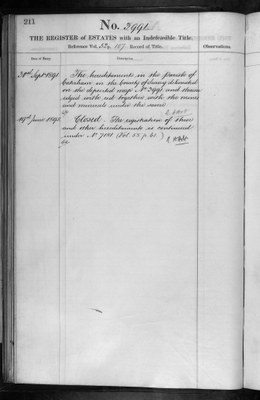 211
No. 2991
THE REGISTER of ESTATES with an Indefeasible Title.
Reference Vol. 52 p 117 Record of Title.
Observations.
Date of Entry.
Description.
30th Sept 1891
The hereditaments in the Parish of
Caterham in the County of Surrey delineated
on the deposited map No 2991 and thereon
edged with red together with the mines
and minerals under the same
17th June 1893
Closed. The registration of these
and other hereditaments is continued
under No (Vol. p. 61)